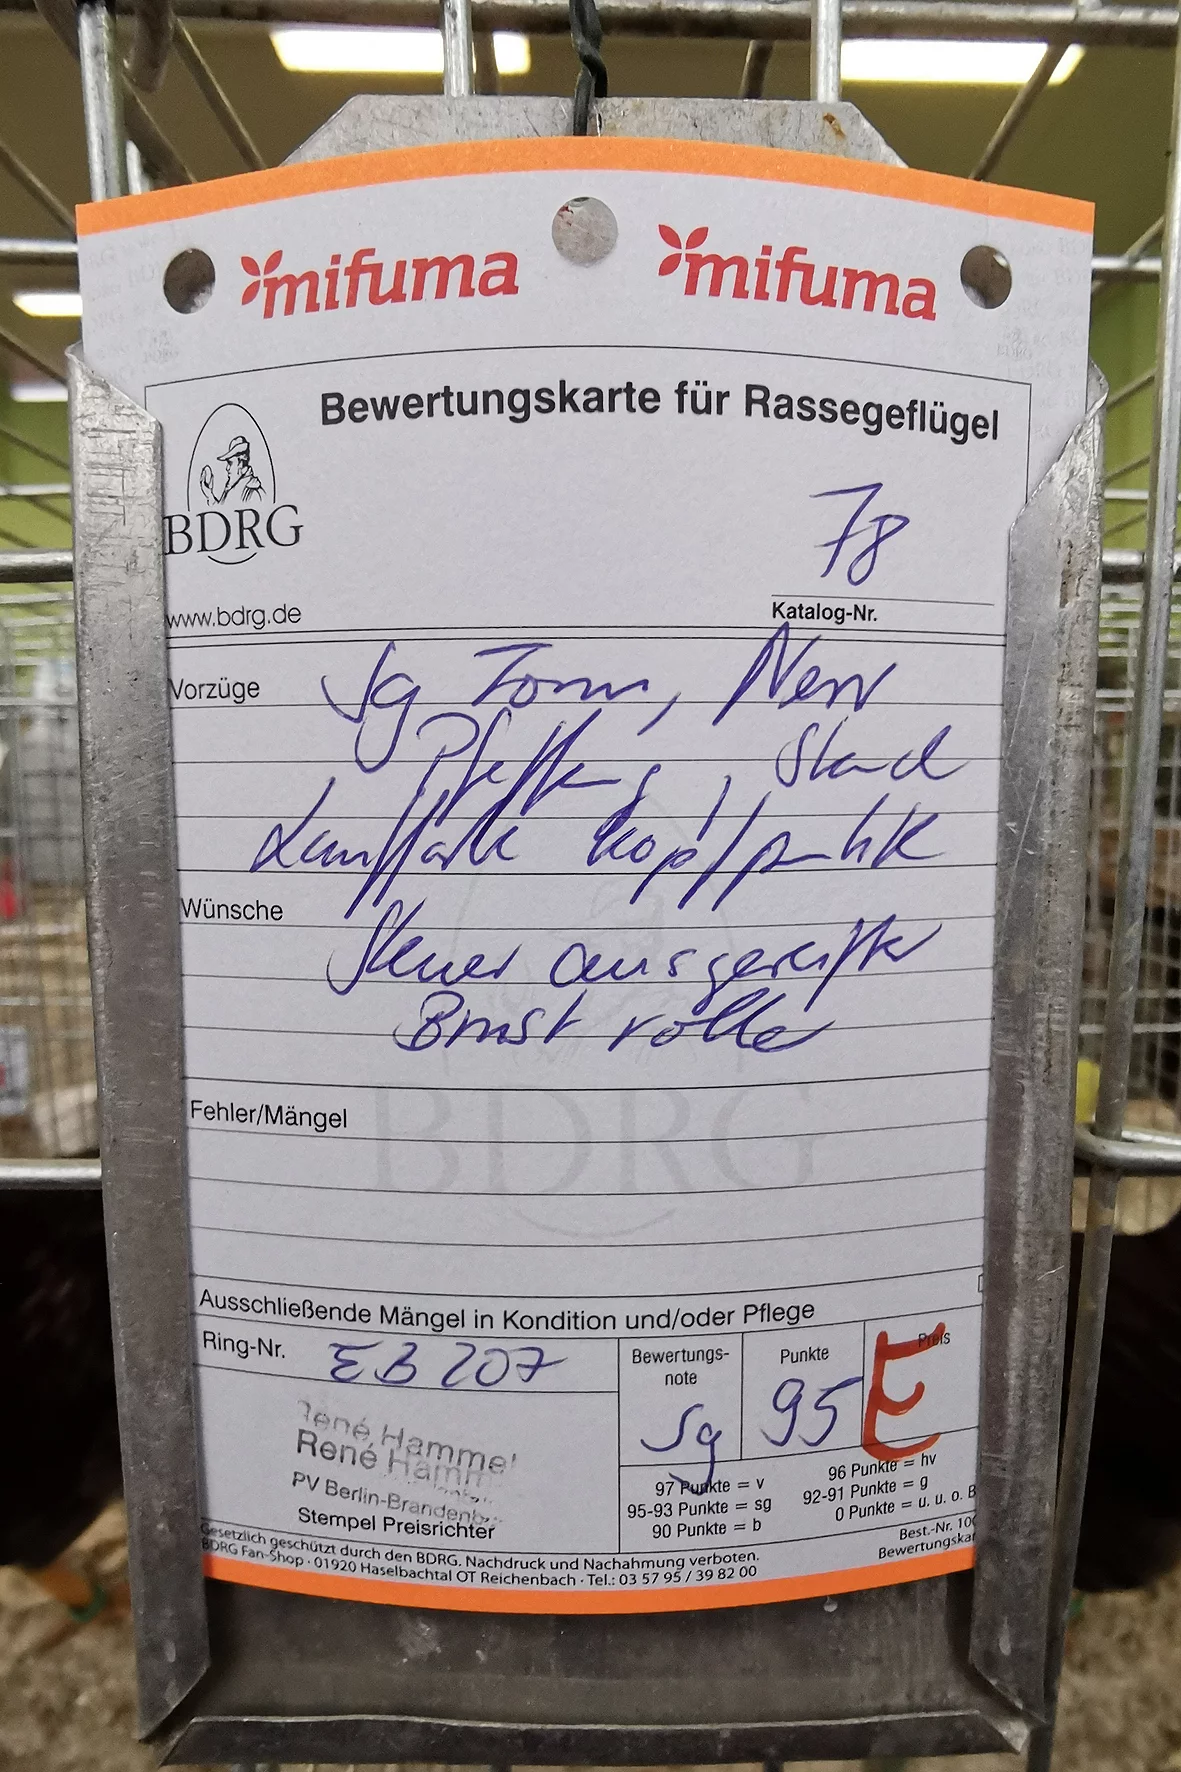 mifuma mifuma
Bewertungskarte für Rassegeflügel
BDRG
78
www.bdrg.de
Katalog-Nr.
Vorzüge Sg Form,
, Stand
Lauffarbe Kopfpunkte
Wünsche
Steuer ausgereifter
Brust voller
BDRG
Fehler/Mängel
Ausschließende Mängel in Kondition und/oder Pflege
Ring-Nr. EB 207
Bewertungs-
note
Sg
Punkte
95
Preis
E
René Hammel
René Hamm
PV Berlin-Brandenb
Stempel Preisrichter
97 Punkte = v 96 Punkte = hv
95-93 Punkte = sg 92-91 Punkte = g
90 Punkte = b 0 Punkte = u. u. o. B
Gesetzlich geschützt durch den BDRG. Nachdruck und Nachahmung verboten. Best.-Nr. 10
BDRG Fan-Shop · 01920 Haselbachtal OT Reichenbach · Tel.: 03 57 95 / 39 82 00 Bewertungskar